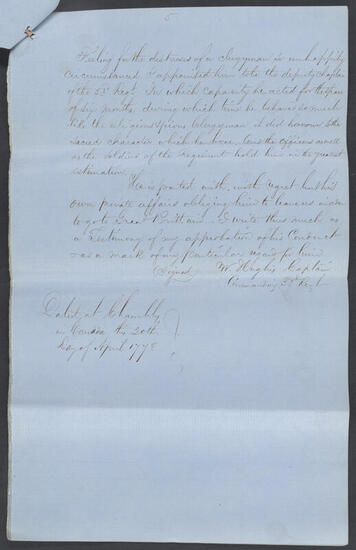 5
Feeling for the distresses of a clergyman so unhappily
circumstanced I appointed him to be deputy chaplain
of the 53 Regt. In which capacity he acted for the space
of six months, during which time he behaved so much
like the religious pious Clergyman it did honour to the
sacred character which he bore. Sure the Officers as well
as the soldiers of the Regiment hold him in the greatest
estimation.
He is parted with, with regret but his
own private affairs obliging him to leave us in order
to go to Great Brittain. I write thus much as
a Testimony of my approbation of his Conduct
& as a mark of my particular regard for him
Signed W. Hughes Captain
Commanding 53 Regt
Dated at Chambly
in Canada this 20th
Day of April 1778